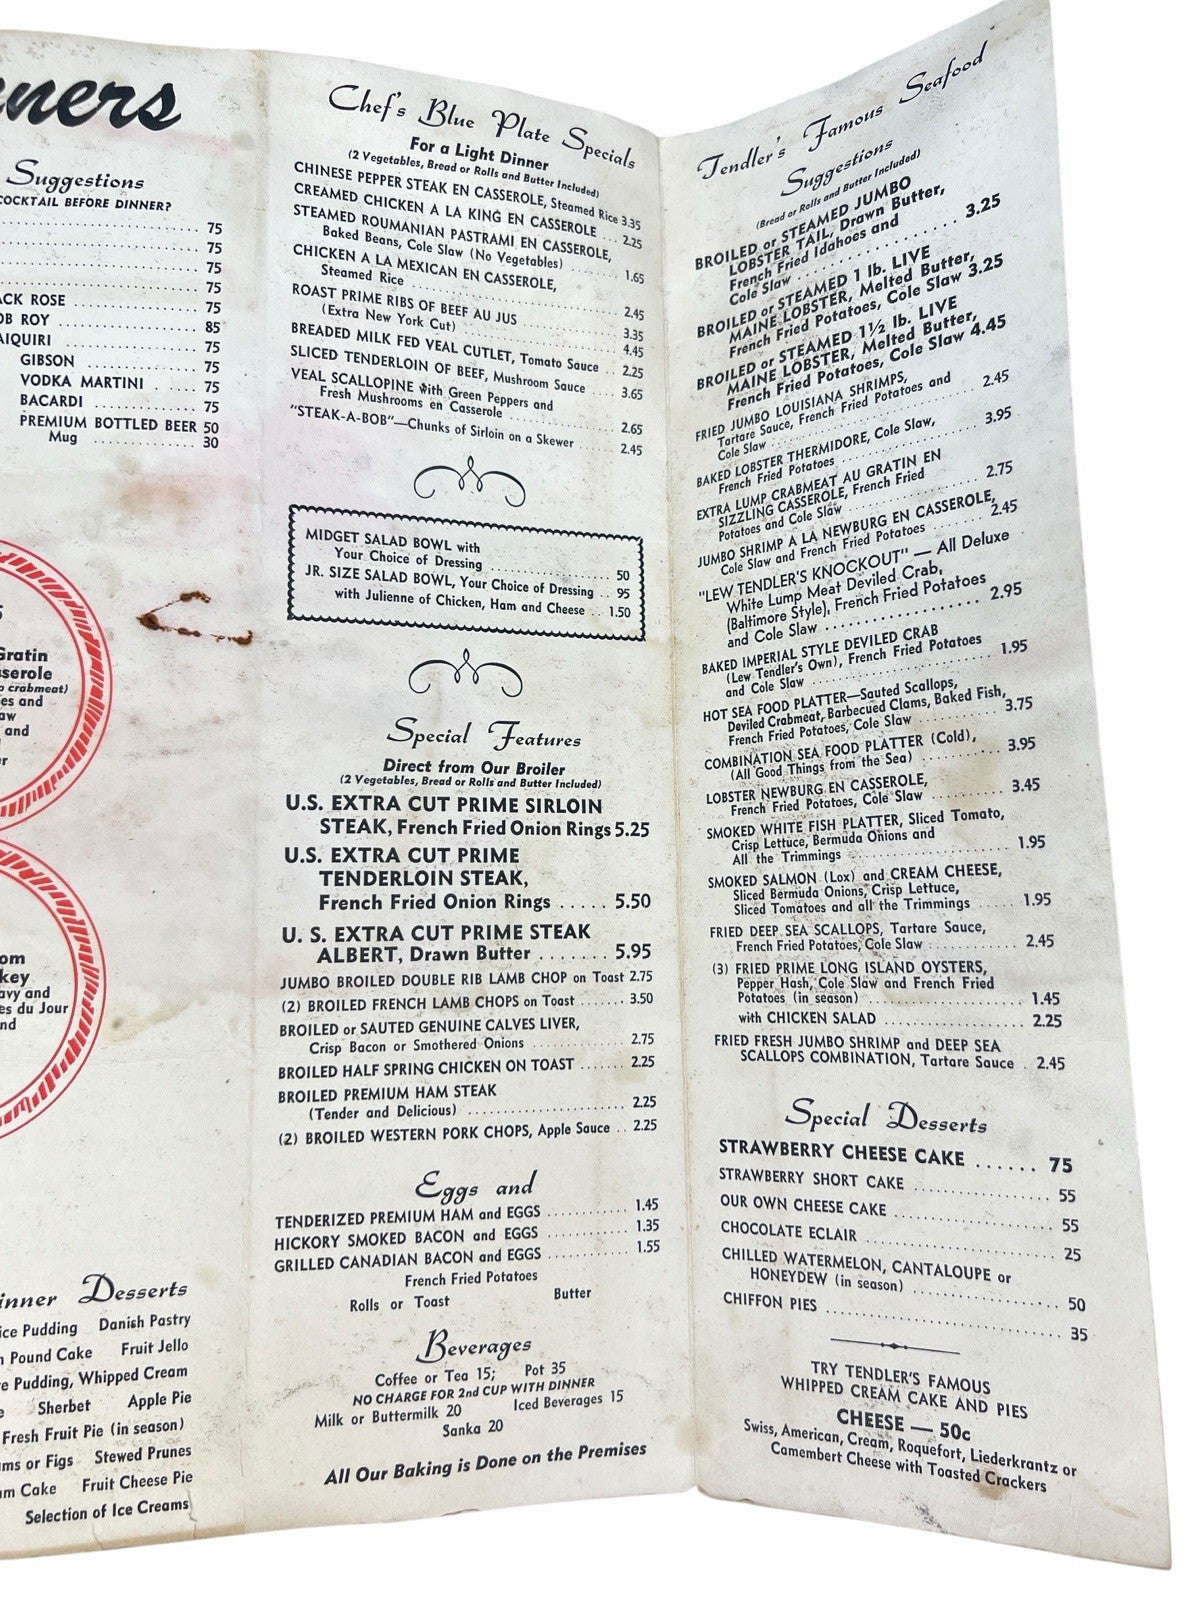 nners
Suggestions
COCKTAIL BEFORE DINNER?
75
75
75
75
ACK ROSE 75
OB ROY 85
AIQUIRI 75
GIBSON 75
VODKA MARTINI 75
BACARDI 75
PREMIUM BOTTLED BEER 50
Mug 30
5
Gratin
serole
o crabmeat)
es and
aw
and
er
om
key
avy and
es du Jour
nd
inner Desserts
ice Pudding Danish Pastry
n Pound Cake Fruit Jello
e Pudding, Whipped Cream
e Sherbet Apple Pie
Fresh Fruit Pie (in season)
ms or Figs Stewed Prunes
am Cake Fruit Cheese Pie
Selection of Ice Creams
Chef's Blue Plate Specials
For a Light Dinner
(2 Vegetables, Bread or Rolls and Butter Included)
CHINESE PEPPER STEAK EN CASSEROLE, Steamed Rice 3.35
CREAMED CHICKEN A LA KING EN CASSEROLE ... 2.25
STEAMED ROUMANIAN PASTRAMI EN CASSEROLE,
Baked Beans, Cole Slaw (No Vegetables) 1.65
CHICKEN A LA MEXICAN EN CASSEROLE,
Steamed Rice 2.45
ROAST PRIME RIBS OF BEEF AU JUS 3.35
(Extra New York Cut) 4.45
BREADED MILK FED VEAL CUTLET, Tomato Sauce ... 2.25
SLICED TENDERLOIN OF BEEF, Mushroom Sauce 3.65
VEAL SCALLOPINE with Green Peppers and
Fresh Mushrooms en Casserole 2.65
"STEAK-A-BOB"—Chunks of Sirloin on a Skewer 2.45
MIDGET SALAD BOWL with
Your Choice of Dressing 50
JR. SIZE SALAD BOWL, Your Choice of Dressing .. 95
with Julienne of Chicken, Ham and Cheese .. 1.50
Special Features
Direct from Our Broiler
(2 Vegetables, Bread or Rolls and Butter Included)
U.S. EXTRA CUT PRIME SIRLOIN
STEAK, French Fried Onion Rings 5.25
U.S. EXTRA CUT PRIME
TENDERLOIN STEAK,
French Fried Onion Rings ..... 5.50
U. S. EXTRA CUT PRIME STEAK
ALBERT, Drawn Butter ....... 5.95
JUMBO BROILED DOUBLE RIB LAMB CHOP on Toast 2.75
(2) BROILED FRENCH LAMB CHOPS on Toast ....... 3.50
BROILED or SAUTED GENUINE CALVES LIVER,
Crisp Bacon or Smothered Onions 2.75
BROILED HALF SPRING CHICKEN ON TOAST ....... 2.25
BROILED PREMIUM HAM STEAK
(Tender and Delicious) 2.25
(2) BROILED WESTERN PORK CHOPS, Apple Sauce .. 2.25
Eggs and
TENDERIZED PREMIUM HAM and EGGS 1.45
HICKORY SMOKED BACON and EGGS 1.35
GRILLED CANADIAN BACON and EGGS 1.55
French Fried Potatoes
Rolls or Toast Butter
Beverages
Coffee or Tea 15; Pot 35
NO CHARGE FOR 2nd CUP WITH DINNER
Milk or Buttermilk 20 Iced Beverages 15
Sanka 20
All Our Baking is Done on the Premises
Tendler's Famous Seafood
Suggestions
(Bread or Rolls and Butter Included)
BROILED or STEAMED JUMBO
LOBSTER TAIL, Drawn Butter,
French Fried Idahoes and
Cole Slaw 3.25
BROILED or STEAMED 1 lb. LIVE
MAINE LOBSTER, Melted Butter,
French Fried Potatoes, Cole Slaw 3.25
BROILED or STEAMED 1½ lb. LIVE
MAINE LOBSTER, Melted Butter,
French Fried Potatoes, Cole Slaw 4.45
FRIED JUMBO LOUISIANA SHRIMPS,
Tartare Sauce, French Fried Potatoes and
Cole Slaw 2.45
BAKED LOBSTER THERMIDORE, Cole Slaw,
French Fried Potatoes 3.95
EXTRA LUMP CRABMEAT AU GRATIN EN
SIZZLING CASSEROLE, French Fried
Potatoes and Cole Slaw 2.75
JUMBO SHRIMP A LA NEWBURG EN CASSEROLE,
Cole Slaw and French Fried Potatoes 2.45
"LEW TENDLER'S KNOCKOUT" — All Deluxe
White Lump Meat Deviled Crab,
(Baltimore Style), French Fried Potatoes
and Cole Slaw 2.95
BAKED IMPERIAL STYLE DEVILED CRAB
(Lew Tendler's Own), French Fried Potatoes
and Cole Slaw 1.95
HOT SEA FOOD PLATTER—Sauted Scallops,
Deviled Crabmeat, Barbecued Clams, Baked Fish,
French Fried Potatoes, Cole Slaw 3.75
COMBINATION SEA FOOD PLATTER (Cold),
(All Good Things from the Sea) 3.95
LOBSTER NEWBURG EN CASSEROLE,
French Fried Potatoes, Cole Slaw 3.45
SMOKED WHITE FISH PLATTER, Sliced Tomato,
Crisp Lettuce, Bermuda Onions and
All the Trimmings 1.95
SMOKED SALMON (Lox) and CREAM CHEESE,
Sliced Bermuda Onions, Crisp Lettuce,
Sliced Tomatoes and all the Trimmings 1.95
FRIED DEEP SEA SCALLOPS, Tartare Sauce,
French Fried Potatoes, Cole Slaw 2.45
(3) FRIED PRIME LONG ISLAND OYSTERS,
Pepper Hash, Cole Slaw and French Fried
Potatoes (in season) 1.45
with CHICKEN SALAD 2.25
FRIED FRESH JUMBO SHRIMP and DEEP SEA
SCALLOPS COMBINATION, Tartare Sauce . 2.45
Special Desserts
STRAWBERRY CHEESE CAKE ...... 75
STRAWBERRY SHORT CAKE 55
OUR OWN CHEESE CAKE 55
CHOCOLATE ECLAIR 25
CHILLED WATERMELON, CANTALOUPE or
HONEYDEW (in season) 50
CHIFFON PIES 35
TRY TENDLER'S FAMOUS
WHIPPED CREAM CAKE AND PIES
CHEESE — 50c
Swiss, American, Cream, Roquefort, Liederkrantz or
Camembert Cheese with Toasted Crackers